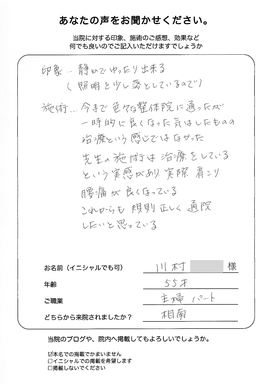 あなたの声をお聞かせください。
当院に対する印象、施術のご感想、効果など
何でも良いのでご記入いただけますでしょうか
印象…静かでゆったり出来る
(照明を少し落としているので)
施術…今まで色々な整体院に通ったが
一時的に良くなった気はしたものの
治療という感じではなかった
先生の施術は治療をしている
という実感があり実際肩こり
腰痛が良くなっている
これからも規則正しく通院
したいと思っている
お名前(イニシャルでも可) 川村 様
年齢 55才
ご職業 主婦 パート
どちらから来院されましたか? 相南
当院のブログや、院内へ掲載してもよろしいでしょうか。
☑本名での掲載でかまいません
□イニシャルでの掲載を希望します
□掲載しないでください